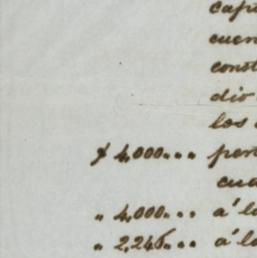 cap
cuen
const
dio
los
$ 4,000... per
cua
" 4,000... á la
" 2,246... á la